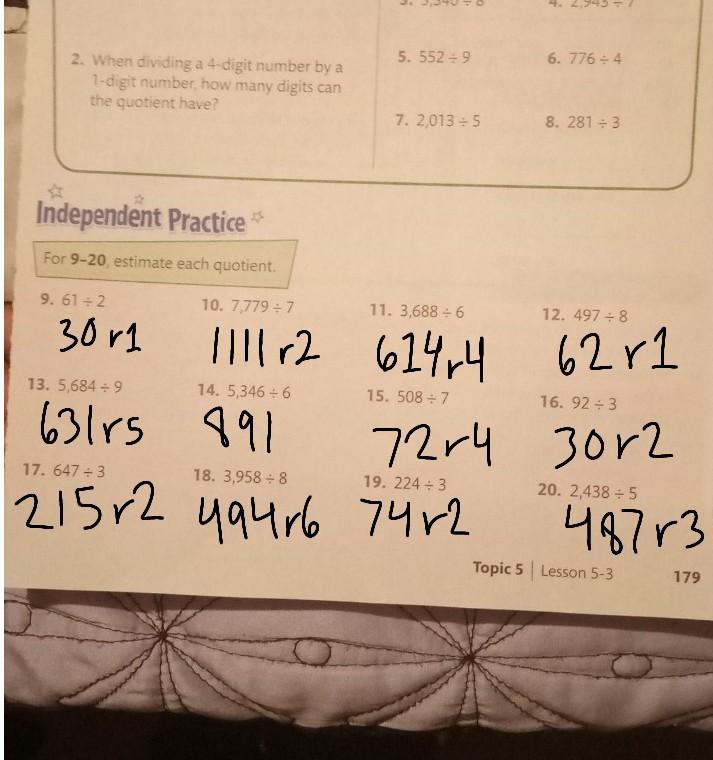 3. 3,340 ÷ 8
4. 2,943 ÷ 7
2. When dividing a 4-digit number by a
1-digit number, how many digits can
the quotient have?
5. 552 ÷ 9
6. 776 ÷ 4
7. 2,013 ÷ 5
8. 281 ÷ 3
Independent Practice
For 9–20, estimate each quotient.
9. 61 ÷ 2
10. 7,779 ÷ 7
11. 3,688 ÷ 6
12. 497 ÷ 8
30 r1
1111 r2
614r4
62 r1
13. 5,684 ÷ 9
14. 5,346 ÷ 6
15. 508 ÷ 7
16. 92 ÷ 3
631r5
891
72r4
30r2
17. 647 ÷ 3
18. 3,958 ÷ 8
19. 224 ÷ 3
20. 2,438 ÷ 5
215r2
494r6
74r2
487r3
Topic 5 | Lesson 5-3 179